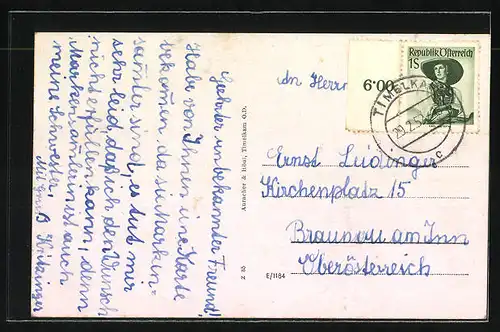 Geehrter unbekannter Freund!
Habe von Ihnen eine Karte
bekommen da sie Marken-
samler sind, es tut mir
sehr leid, daß ich den Wunsch
nicht erfüllen kann, denn
Markensamlerin ist auch
meine Schwester.
Mit Gruß Hitzinger
Z 85
E/1184
6.00
Republik Österreich
1S
TIMELKAM
20.2.5
c
An Herrn
Ernst Luidinger
Kirchenplatz 15
Braunau am Inn
Oberösterreich